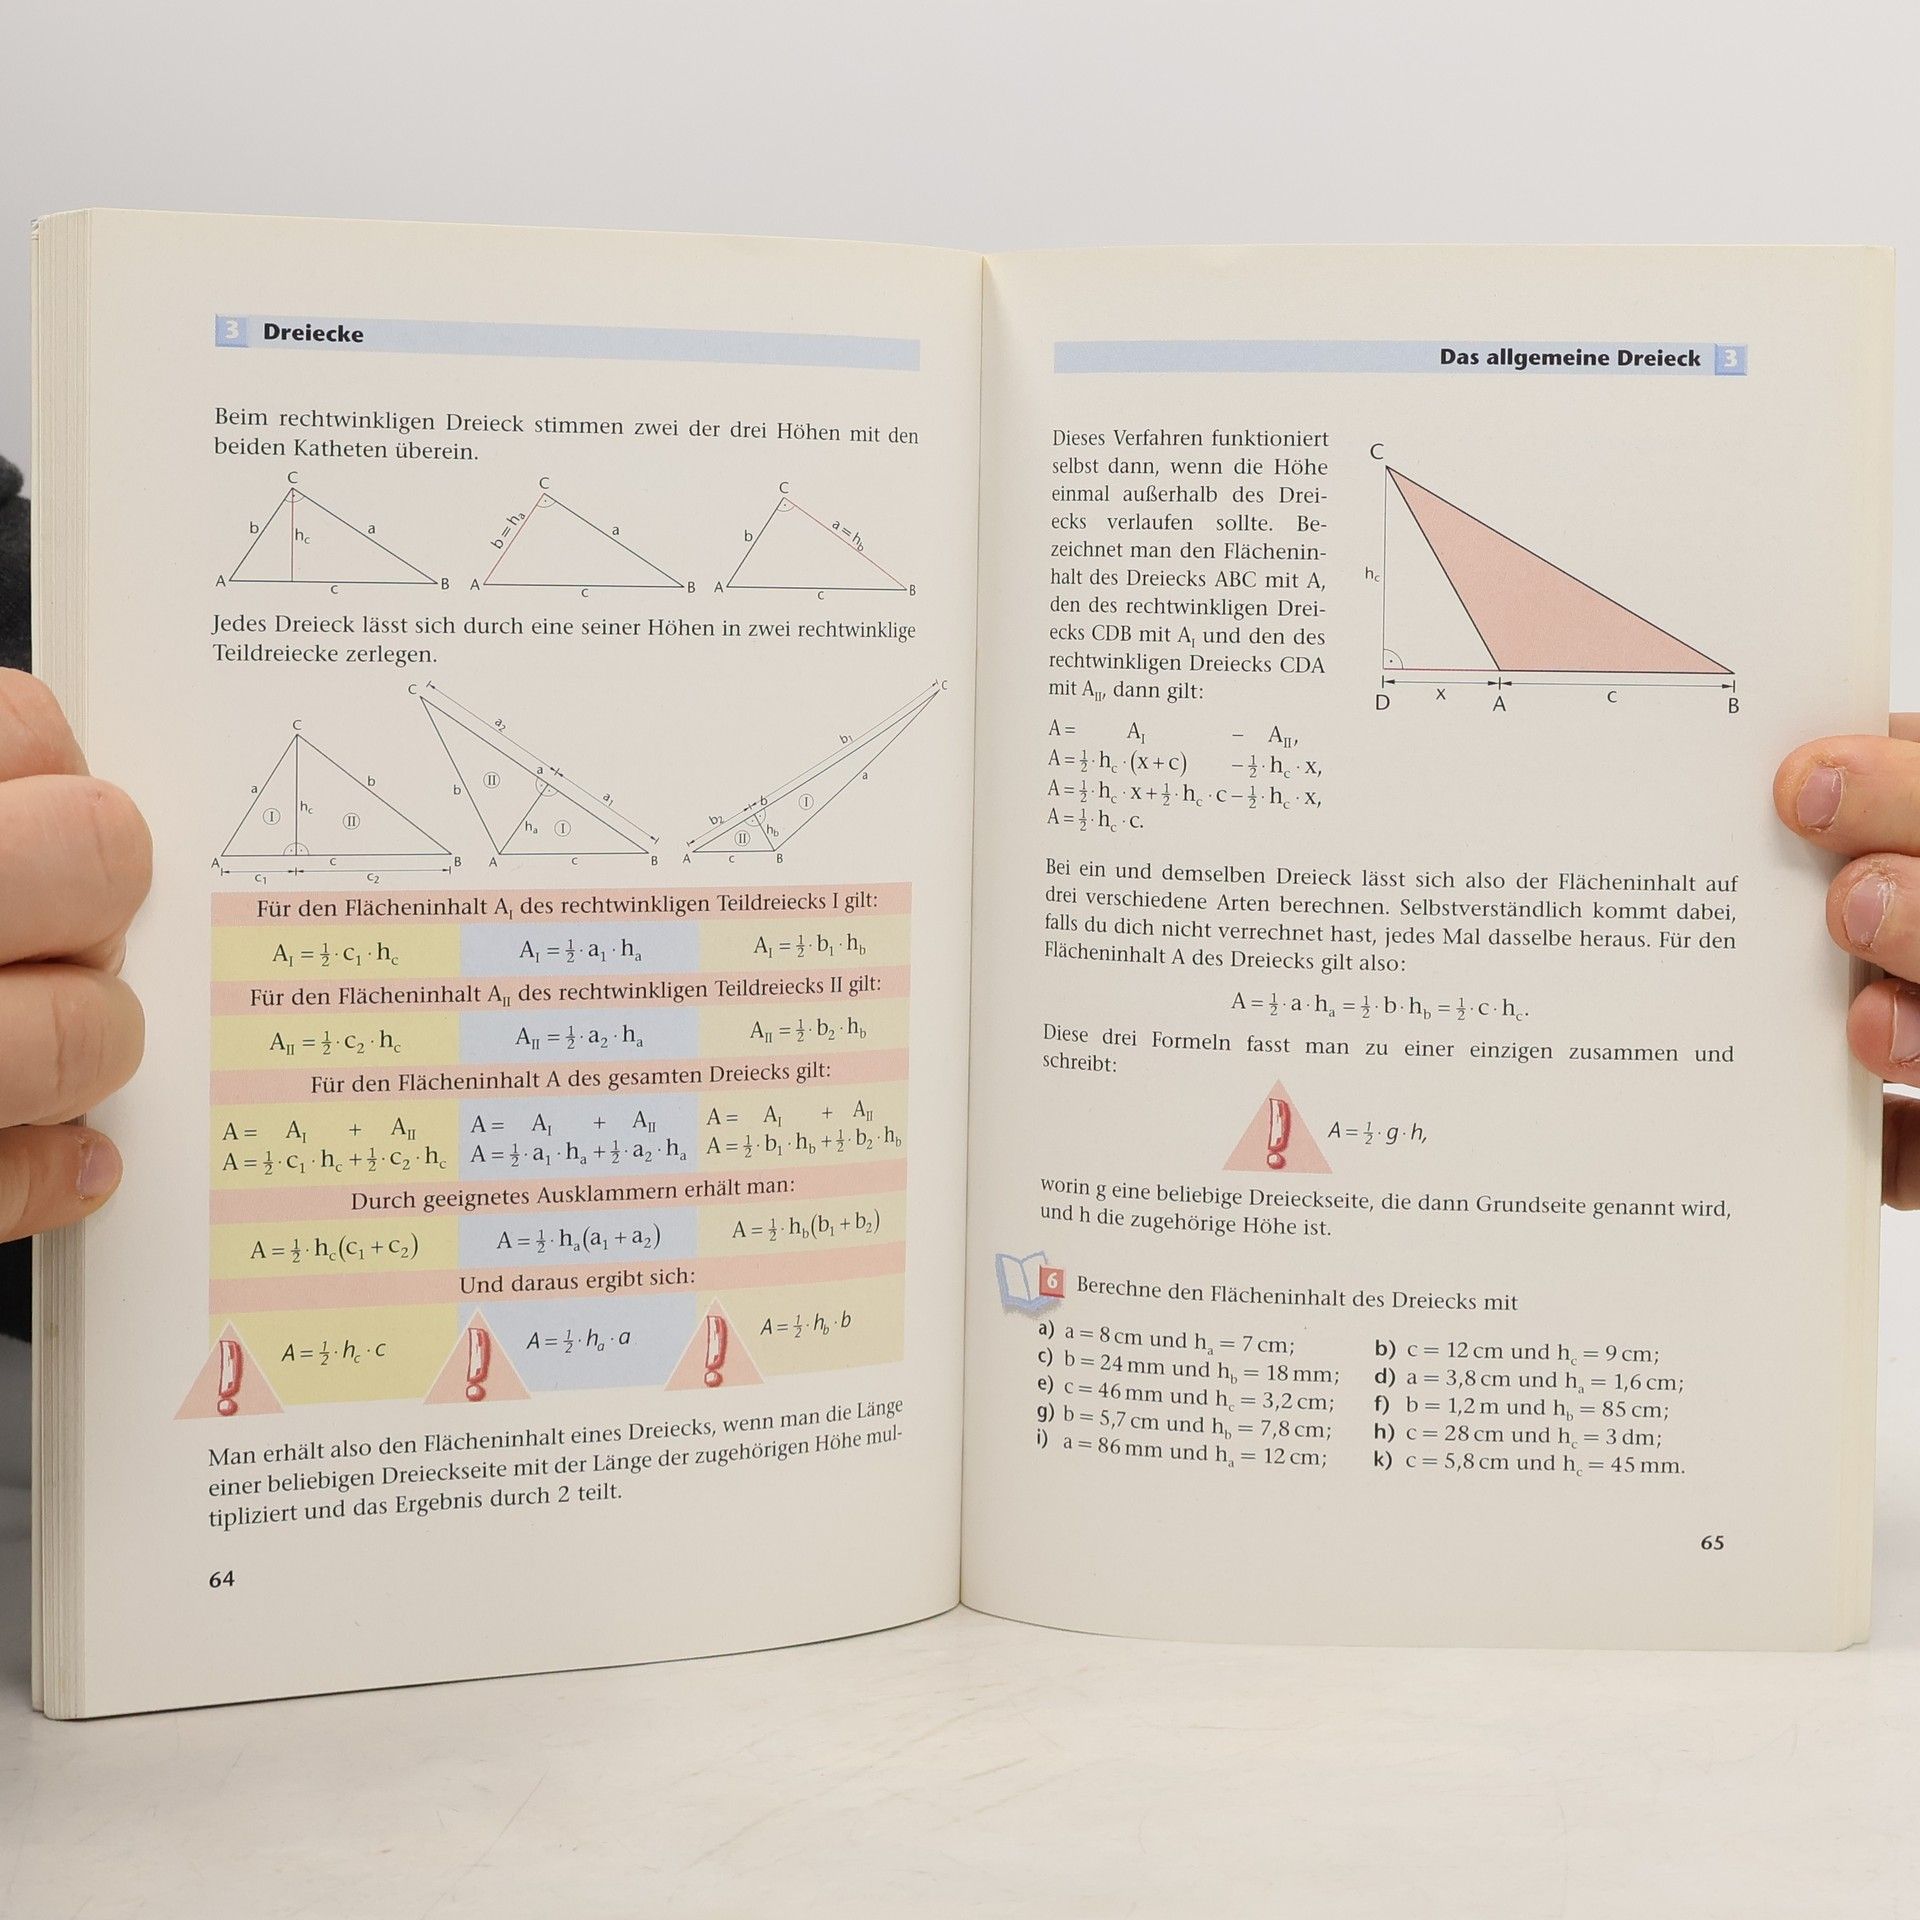 3 Dreiecke
Beim rechtwinkligen Dreieck stimmen zwei der drei Höhen mit den
beiden Katheten überein.
C
b
h_c
a
A
c
B
C
b = h_a
a
A
c
B
C
b
a = h_b
A
c
B
Jedes Dreieck lässt sich durch eine seiner Höhen in zwei rechtwinklige
Teildreiecke zerlegen.
C
a
b
h_c
I
II
A
c
B
c₁
c₂
C
a₂
a
a₁
b
II
h_a
I
A
c
B
C
b₁
a
b
I
b₂
II
h_b
A
c
B
Für den Flächeninhalt A_I des rechtwinkligen Teildreiecks I gilt:
A_I = ½ · c₁ · h_c A_I = ½ · a₁ · h_a A_I = ½ · b₁ · h_b
Für den Flächeninhalt A_II des rechtwinkligen Teildreiecks II gilt:
A_II = ½ · c₂ · h_c A_II = ½ · a₂ · h_a A_II = ½ · b₂ · h_b
Für den Flächeninhalt A des gesamten Dreiecks gilt:
A = A_I + A_II A = A_I + A_II A = A_I + A_II
A = ½ · c₁ · h_c + ½ · c₂ · h_c A = ½ · a₁ · h_a + ½ · a₂ · h_a A = ½ · b₁ · h_b + ½ · b₂ · h_b
Durch geeignetes Ausklammern erhält man:
A = ½ · h_c(c₁ + c₂) A = ½ · h_a(a₁ + a₂) A = ½ · h_b(b₁ + b₂)
Und daraus ergibt sich:
! A = ½ · h_c · c ! A = ½ · h_a · a ! A = ½ · h_b · b
Man erhält also den Flächeninhalt eines Dreiecks, wenn man die Länge
einer beliebigen Dreieckseite mit der Länge der zugehörigen Höhe mul-
tipliziert und das Ergebnis durch 2 teilt.
64
Das allgemeine Dreieck 3
Dieses Verfahren funktioniert
selbst dann, wenn die Höhe
einmal außerhalb des Drei-
ecks verlaufen sollte. Be-
zeichnet man den Flächenin-
halt des Dreiecks ABC mit A,
den des rechtwinkligen Drei-
ecks CDB mit A_I und den des
rechtwinkligen Dreiecks CDA
mit A_II, dann gilt:
C
h_c
x
c
D
A
B
A = A_I − A_II,
A = ½ · h_c · (x + c) − ½ · h_c · x,
A = ½ · h_c · x + ½ · h_c · c − ½ · h_c · x,
A = ½ · h_c · c.
Bei ein und demselben Dreieck lässt sich also der Flächeninhalt auf
drei verschiedene Arten berechnen. Selbstverständlich kommt dabei,
falls du dich nicht verrechnet hast, jedes Mal dasselbe heraus. Für den
Flächeninhalt A des Dreiecks gilt also:
A = ½ · a · h_a = ½ · b · h_b = ½ · c · h_c.
Diese drei Formeln fasst man zu einer einzigen zusammen und
schreibt:
! A = ½ · g · h,
worin g eine beliebige Dreieckseite, die dann Grundseite genannt wird,
und h die zugehörige Höhe ist.
6 Berechne den Flächeninhalt des Dreiecks mit
a) a = 8 cm und h_a = 7 cm; b) c = 12 cm und h_c = 9 cm;
c) b = 24 mm und h_b = 18 mm; d) a = 3,8 cm und h_a = 1,6 cm;
e) c = 46 mm und h_c = 3,2 cm; f) b = 1,2 m und h_b = 85 cm;
g) b = 5,7 cm und h_b = 7,8 cm; h) c = 28 cm und h_c = 3 dm;
i) a = 86 mm und h_a = 12 cm; k) c = 5,8 cm und h_c = 45 mm.
65